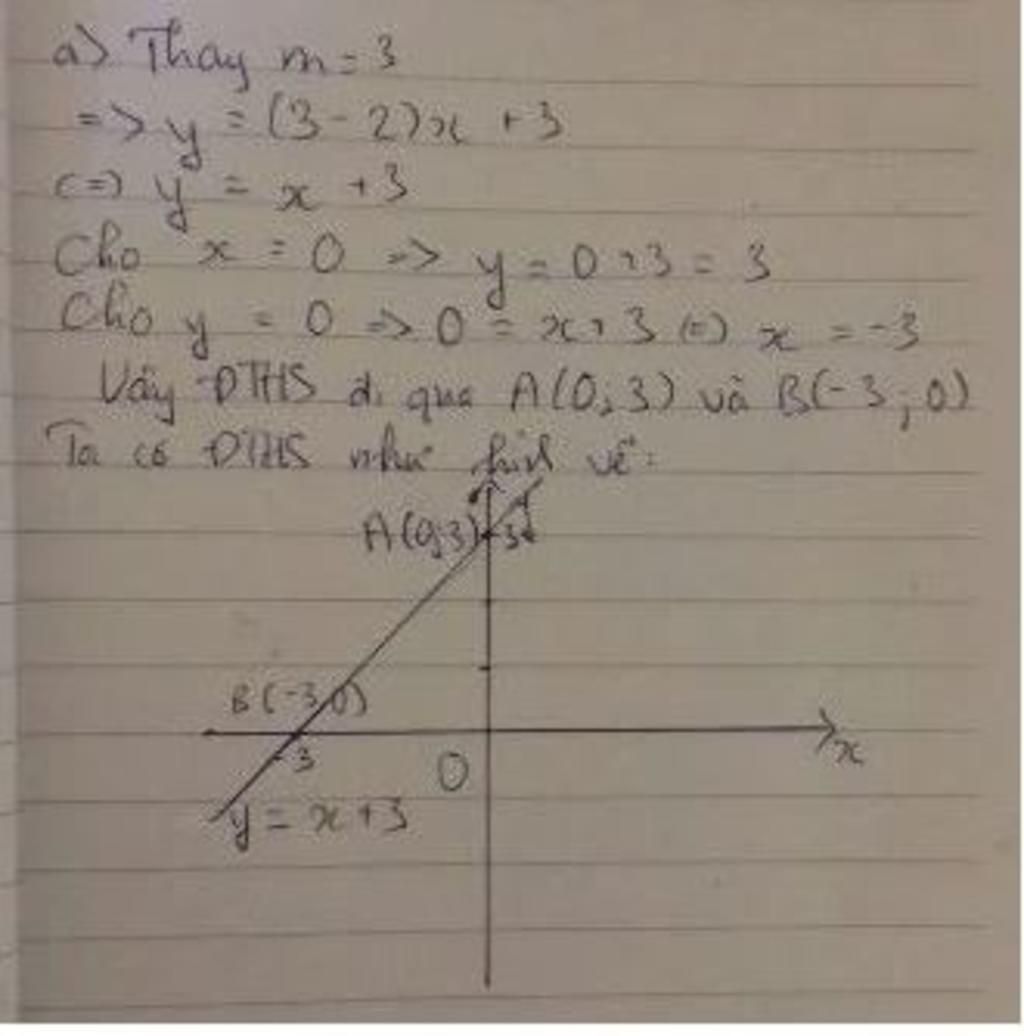 a) Thay m = 3
=> y = (3 - 2)x + 3
<=> y = x + 3
Cho x = 0 => y = 0 + 3 = 3
Cho y = 0 => 0 = x + 3 <=> x = -3
Vậy ĐTHS đi qua A(0; 3) và B(-3; 0)
Ta có ĐTHS như hình vẽ:
A(0;3) 3
B(-3,0)
-3
O
x
y = x + 3